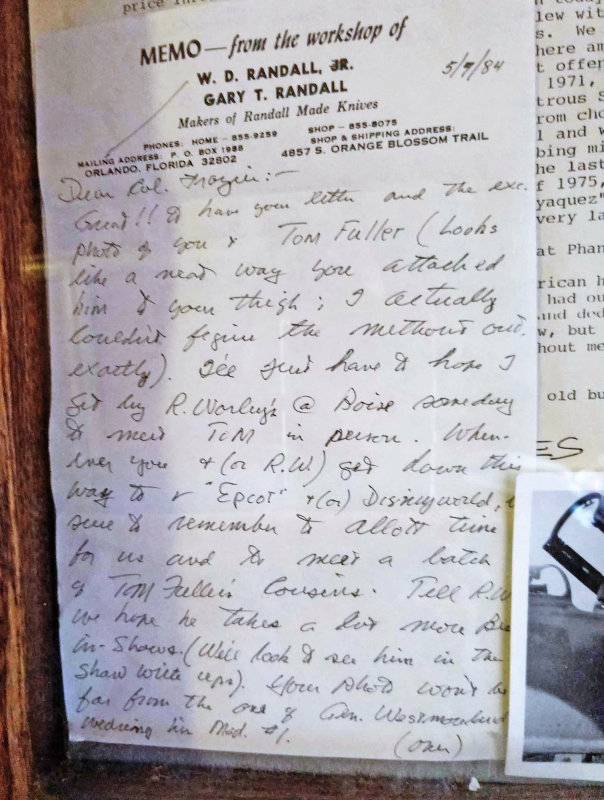 price
MEMO—from the workshop of
5/7/84
W. D. RANDALL, JR.
GARY T. RANDALL
Makers of Randall Made Knives
PHONES: HOME - 855-9259 SHOP - 855-8075
MAILING ADDRESS: P. O. BOX 1988 SHOP & SHIPPING ADDRESS:
ORLANDO, FLORIDA 32802 4857 S. ORANGE BLOSSOM TRAIL
Dear Col. :-
Great!! to have your letter and the exc.
photo of you & TOM Fuller (Looks
like a neat way you attached
him to your thigh; I actually
couldn't figure the method out
exactly). I'll just have to hope I
get by R. Worley's @ Boise someday
to meet TOM in person. When-
ever you + (or R.W.) get down this
way to "Epcot" + (or) Disneyworld,
sure to remember to allott time
for us and to meet a batch
of TOM Fuller's Cousins. Tell R.W
we hope he takes a lot more Bes
in-Shows. (We'll look to see him in the
Show write ups). Your photo won't be
far from the one of Gen. Westmoreland
wearing his Mod. #1.
(over)
today
lew wit
s. We
here am
t offen
1971,
trous S
rom cho
l and w
bing mi
he last
f 1975,
yaquez"
very la
at Phan
rican h
had ou
and ded
w, but
hout me
old bu
ES